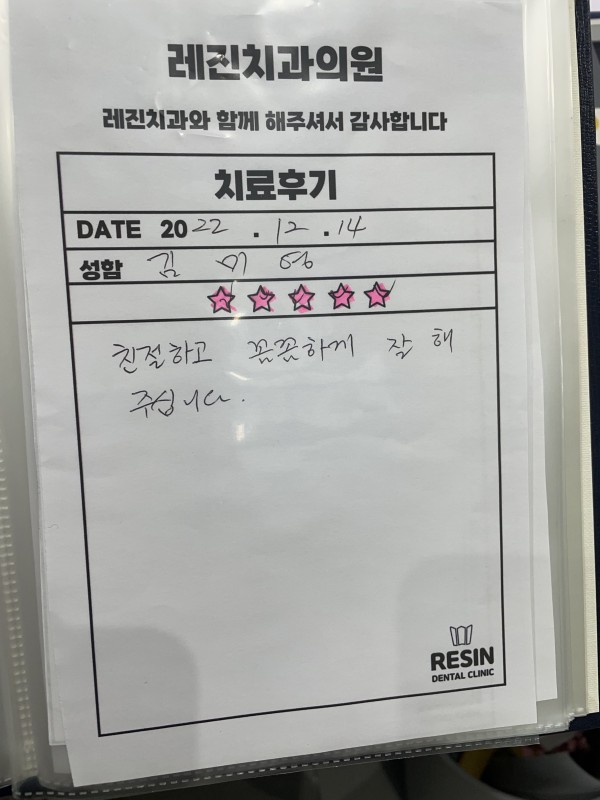 레진치과의원
레진치과와 함께 해주셔서 감사합니다
치료후기
DATE 2022.12.14
성함 김미영
친절하고 꼼꼼하게 잘 해
주십니다.
RESIN
DENTAL CLINIC